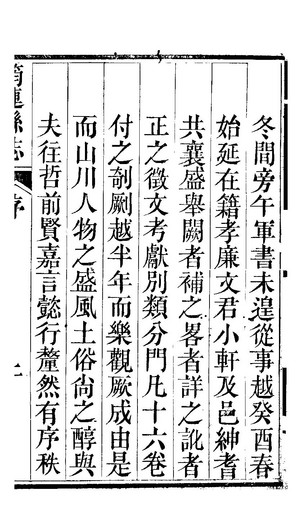 冬間旁午軍書未遑從事越癸酉春
始延在籍孝廉文君小軒及邑紳耆
共襄盛舉闕者補之畧者詳之訛者
正之徵文考獻別類分門凡十六卷
付之剞劂越半年而樂觀厥成由是
而山川人物之盛風土俗尙之醇與
夫往哲前賢嘉言懿行釐然有序秩
筠連縣志
序